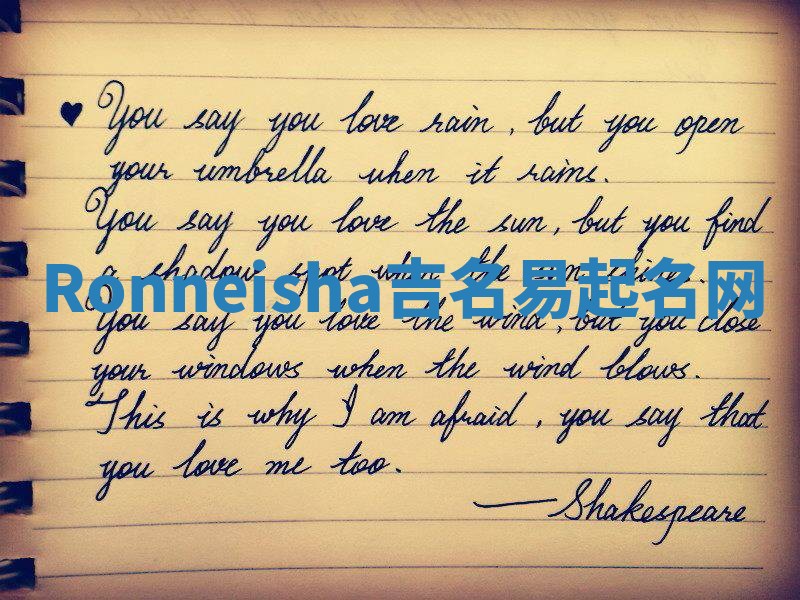 ♥ You say you love rain, but you open
your umbrella when it rains.
You say you love the sun, but you find
a shadow spot when the sun shines.
Ronneisha吉名易起名网
You say you love the wind, but you close
your windows when the wind blows.
This is why I am afraid, you say that
you love me too.
— Shakespeare